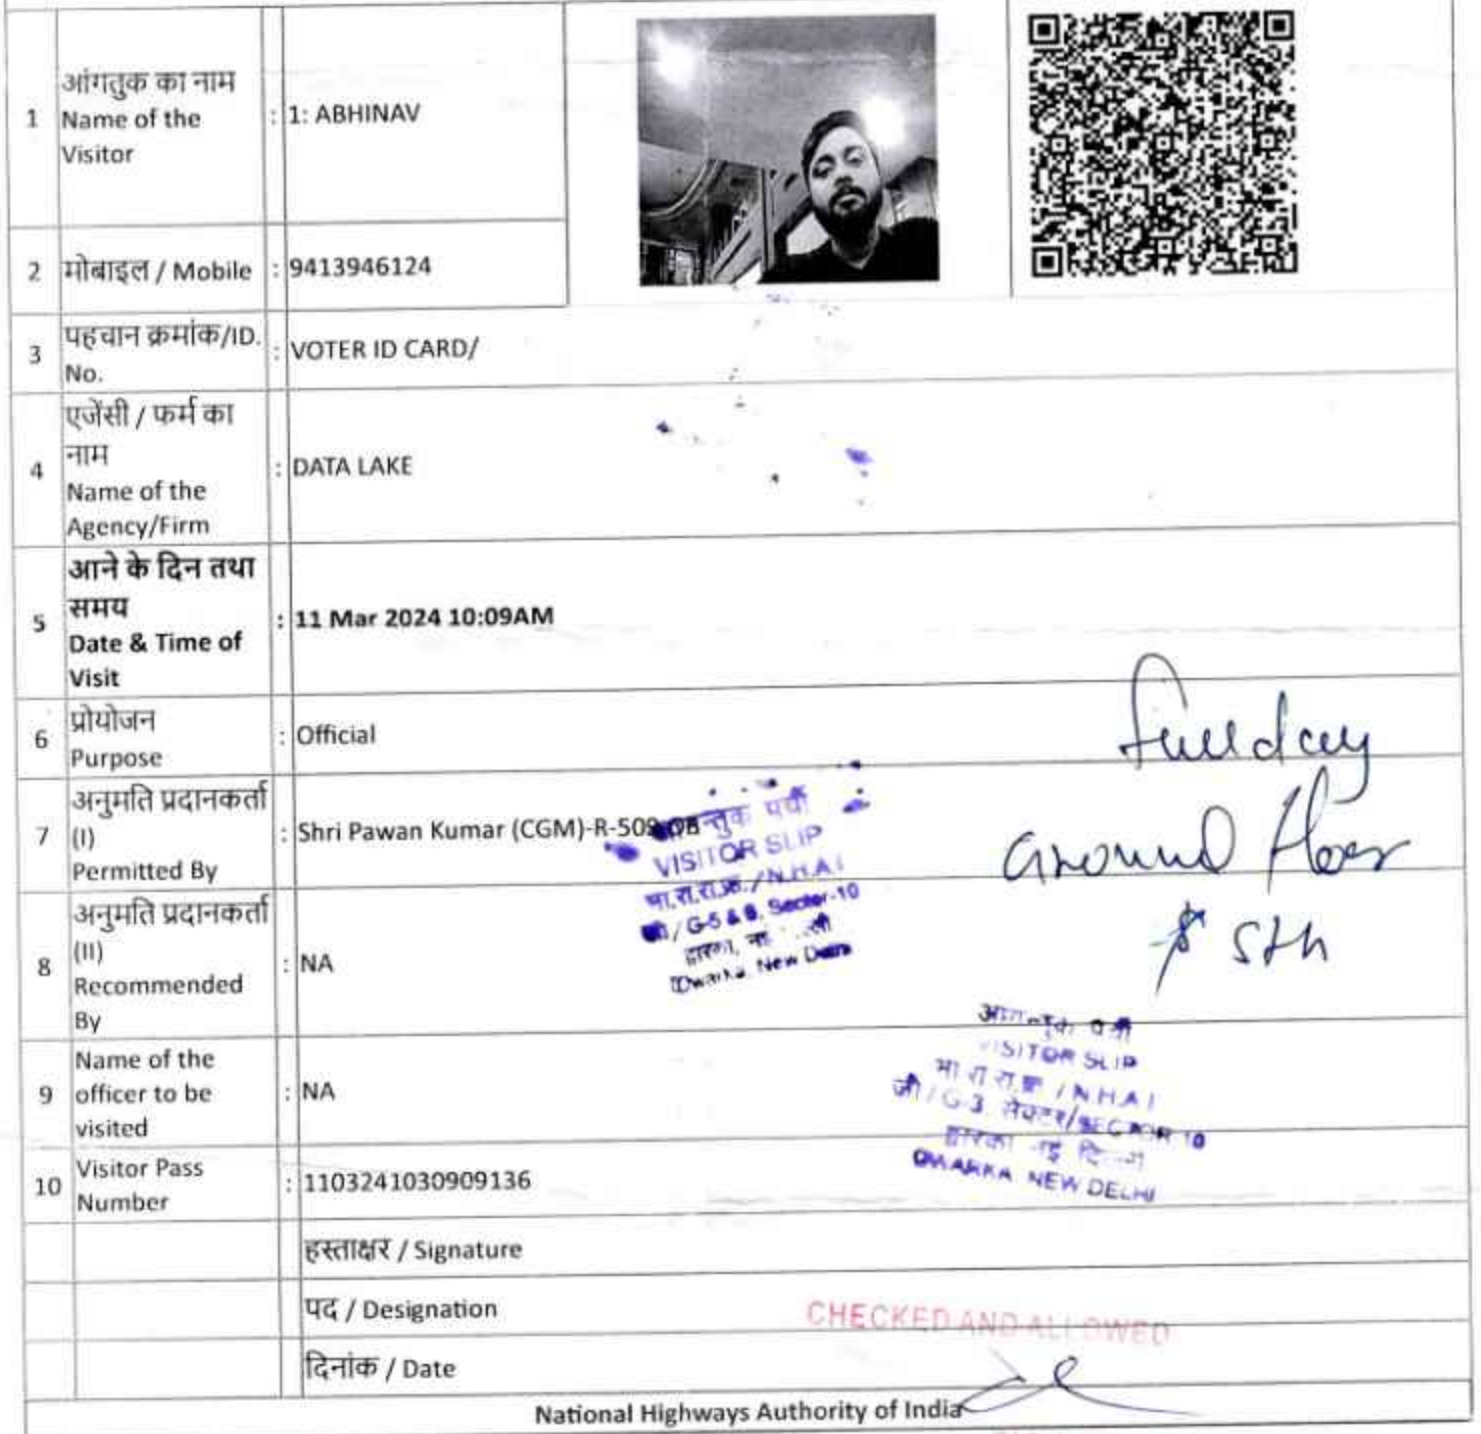 1 आंगतुक का नाम
Name of the
Visitor : 1: ABHINAV
2 मोबाइल / Mobile : 9413946124
3 पहचान क्रमांक/ID.
No. : VOTER ID CARD/
4 एजेंसी / फर्म का
नाम
Name of the
Agency/Firm : DATA LAKE
5 आने के दिन तथा
समय
Date & Time of
Visit : 11 Mar 2024 10:09AM
6 प्रोयोजन
Purpose : Official
7 अनुमति प्रदानकर्ता
(I)
Permitted By : Shri Pawan Kumar (CGM)-R-509
8 अनुमति प्रदानकर्ता
(II)
Recommended
By : NA
9 Name of the
officer to be
visited : NA
10 Visitor Pass
Number : 1103241030909136
हस्ताक्षर / Signature
पद / Designation
दिनांक / Date
National Highways Authority of India
Full day
Ground floor
5th
पर्ची
VISITOR SLIP
भा.रा.रा.प्रा. / N.H.A.I
/ G-5 & 6, Sector-10
द्वारका,
Dwarka New Delhi
VISITOR SLIP
भा रा रा प्रा / N.H.A.I
जी / G-3 सेक्टर/SECTOR 10
द्वारका नई
DWARKA NEW DELHI
CHECKED AND ALLOWED